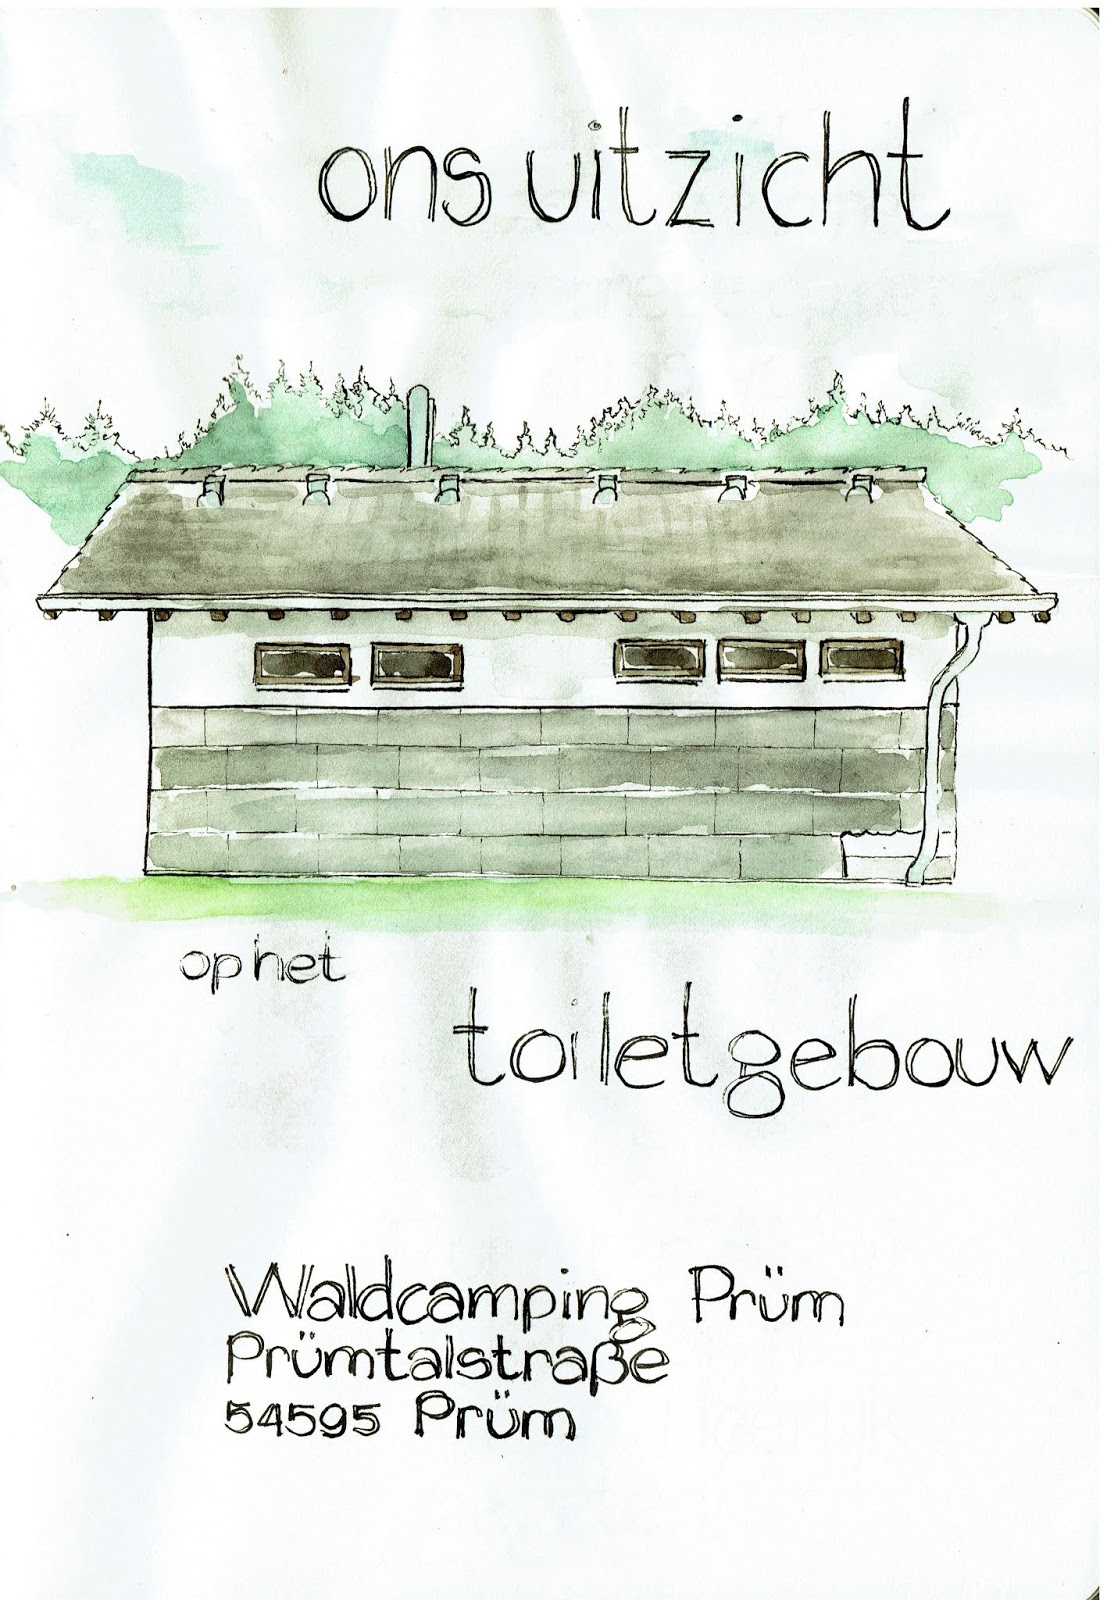 ons uitzicht
op het
toiletgebouw
Waldcamping Prüm
Prümtalstraße
54595 Prüm